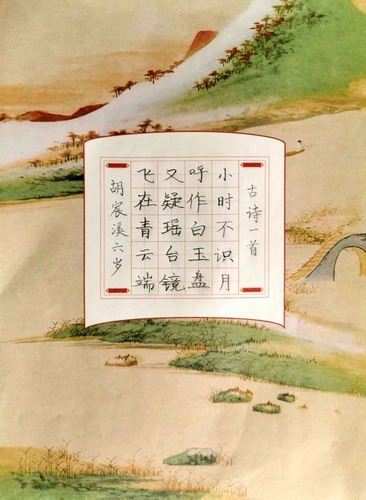 古诗一首
小时不识月
呼作白玉盘
又疑瑶台镜
飞在青云端
胡宸溪六岁